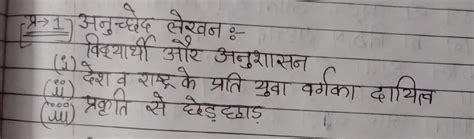 प्र→1 अनुच्छेद लेखन :-
(i) विद्यार्थी और अनुशासन
(ii) देश व राष्ट्र के प्रति युवा वर्गका दायित्व
(iii) प्रकृति से छेड़छाड़